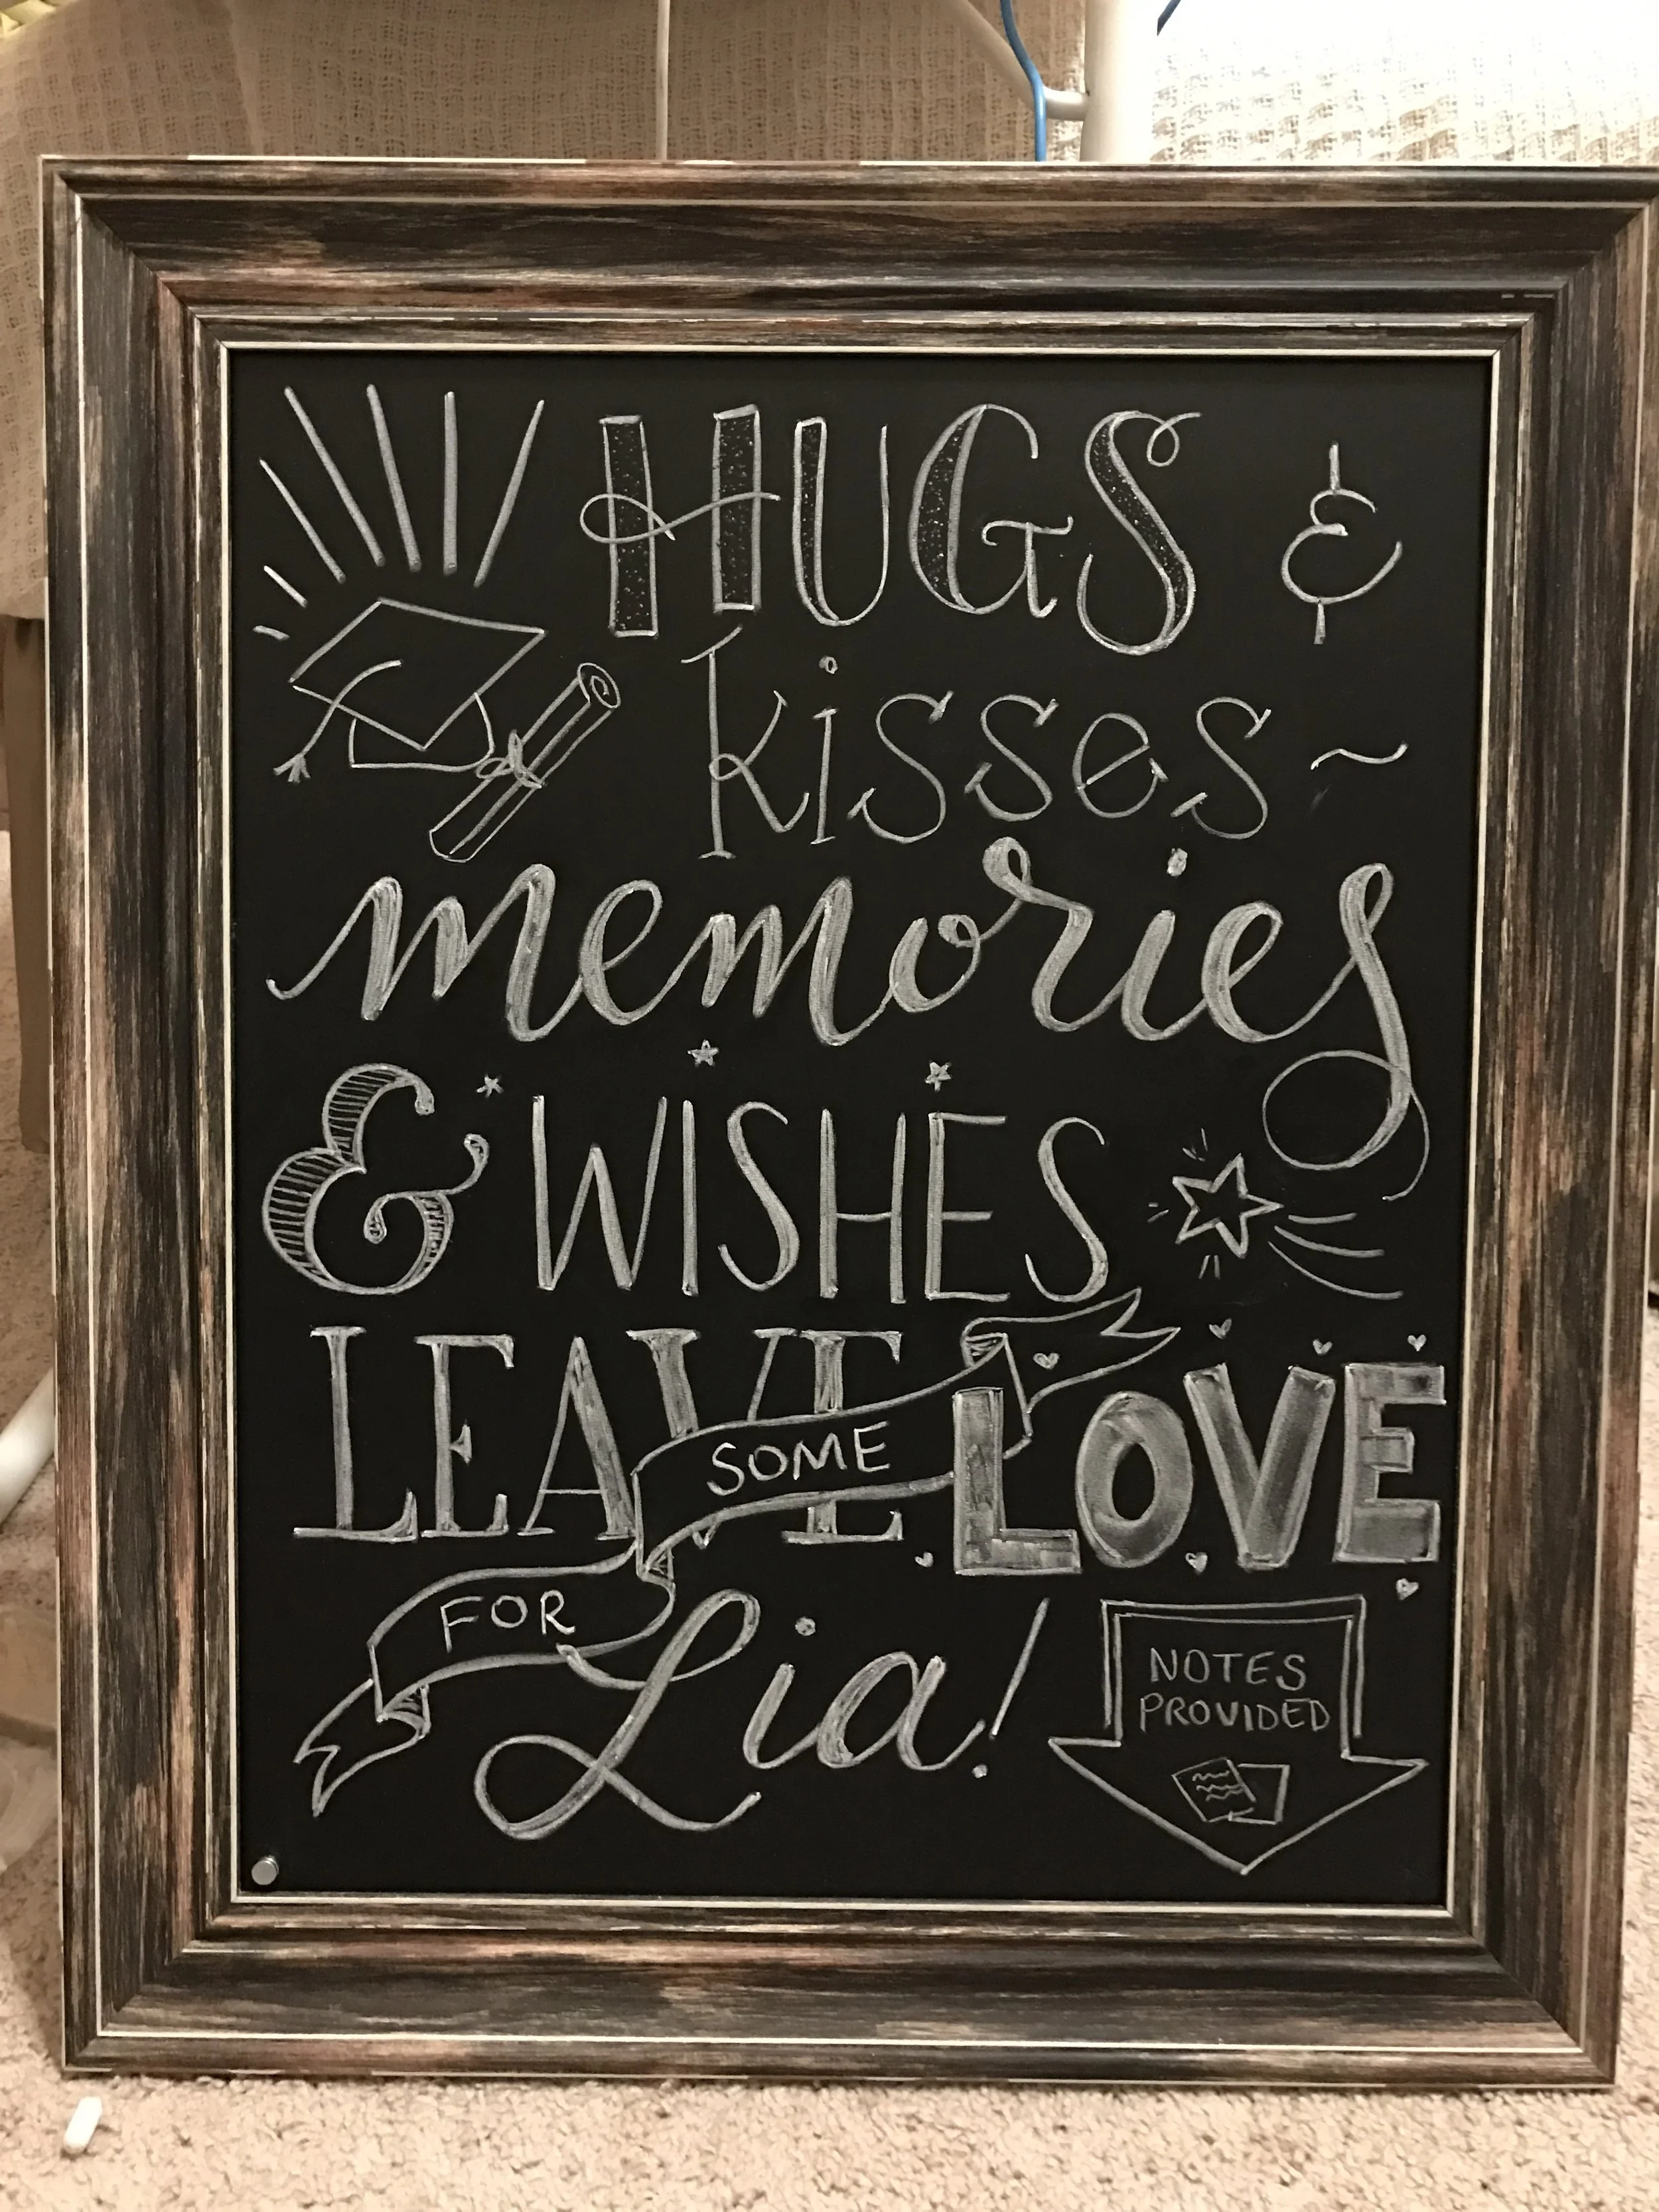 HUGS &
kisses ~
memories
& WISHES
LEAVE SOME LOVE
FOR Lia!
NOTES
PROVIDED